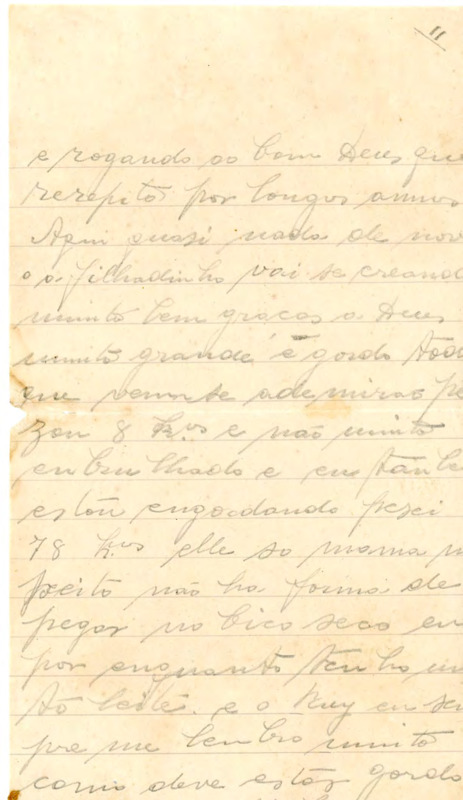 11
e rogando ao bom Deus que
rerepito por longos annos
Aqui quasi nada de nov
o a filhadinho vai se creand
muito bem graças a Deus
muito grande é gordo tod
que venr se ademirao pe
zou 8 k.os e não muito
enbrulhado e eu tanbe
estou engordando pezei
78 k.os elle so mama n
peito não ha forma de
pegar no bico seco eu
por enquanto tenho mi
to leite. e o Ruy eu sen
pre me lenbro muito
como deve estar gordo